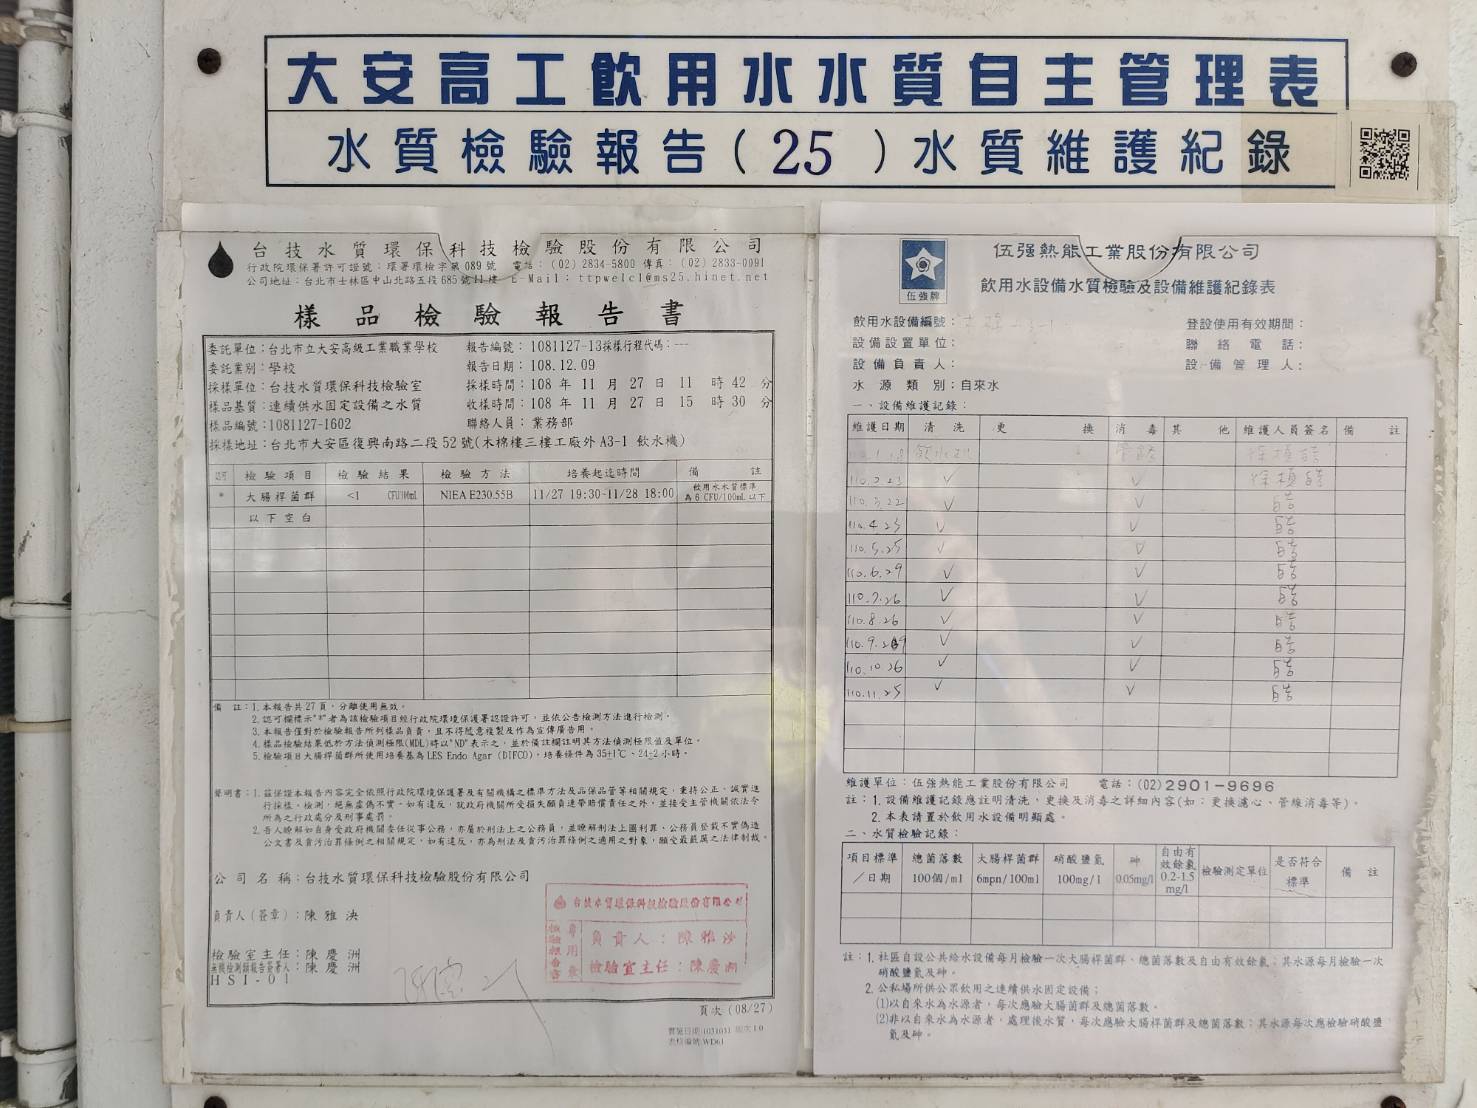 大安高工飲用水水質自主管理表
水質檢驗報告(25)水質維護紀錄
台技水質環保科技檢驗股份有限公司
行政院環保署許可證號:環署環檢字第089號 電話:(02)2834-5800 傳真:(02)2833-0091
公司地址:台北市士林區中山北路五段685號11樓 E-Mail: ttpwelcl@ms25.hinet.net
樣品檢驗報告書
委託單位:台北市立大安高級工業職業學校 報告編號:1081127-13採樣行程代碼:---
委託業別:學校 報告日期:108.12.09
採樣單位:台技水質環保科技檢驗室 採樣時間:108 年 11 月 27 日 11 時 42 分
樣品基質:連續供水固定設備之水質 收樣時間:108 年 11 月 27 日 15 時 30 分
樣品編號:1081127-1602 聯絡人員:業務部
採樣地址:台北市大安區復興南路二段52號(木棉樓三樓工廠外A3-1 飲水機)
檢驗項目 檢驗結果 檢驗方法 培養起迄時間 備註
* 大腸桿菌群 <1 CFU/100mL NIEA E230.55B 11/27 19:30-11/28 18:00 飲用水水質標準
為6 CFU/100mL以下
以下空白
備 註:1.本報告共27頁,分離使用無效。
2.認可欄標示"*"者為該檢驗項目經行政院環境保護署認證許可,並依公告檢測方法進行檢測。
3.本報告僅對於檢驗報告所列樣品負責,且不得隨意複製及作為宣傳廣告用。
4.樣品檢驗結果低於方法偵測極限(MDL)時以"ND"表示之,並於備註欄註明其方法偵測極限值及單位。
5.檢驗項目大腸桿菌群所使用培養基為LES Endo Agar (DIFCO),培養條件為35±1℃、24±2小時。
聲明書:1.茲保證本報告內容完全依照行政院環境保護署及有關機構之標準方法及品保品管等相關規定,秉持公正、誠實進
行採樣、檢測,絕無虛偽不實。如有違反,就政府機關所受損失願負連帶賠償責任之外,並接受主管機關依法令
所為之行政處分及刑事處罰。
2.吾人瞭解如自身受政府機關委任從事公務,亦屬於刑法上之公務員,並瞭解刑法上圖利罪、公務員登載不實偽造
公文書及貪污治罪條例之相關規定,如有違反,亦為刑法及貪污治罪條例之適用之對象,願受最嚴厲之法律制裁。
公司名稱:台技水質環保科技檢驗股份有限公司
負責人(簽章):陳雅泱
檢驗室主任:陳慶洲
無機檢測類報告簽署人:陳慶洲
HSI-01
台技水質環保科技檢驗股份有限公司
檢驗報告書
專用章
負責人:陳雅泱
檢驗室主任:陳慶洲
頁次(08/27)
伍強牌
伍强熱能工業股份有限公司
飲用水設備水質檢驗及設備維護紀錄表
飲用水設備編號: 登設使用有效期間:
設備設置單位: 聯絡電話:
設備負責人: 設備管理人:
水源類別:自來水
一、設備維護記錄:
維護日期 清洗 更換 消毒 其他 維護人員簽名 備註
110.2.23 ✓ ✓
110.3.22 ✓ ✓ 皓
110.4.23 ✓ ✓ 皓
110.5.25 ✓ ✓ 皓
110.6.29 ✓ ✓ 皓
110.7.26 ✓ ✓ 皓
110.8.26 ✓ ✓ 皓
110.9. ✓ ✓ 皓
110.10.26 ✓ ✓ 皓
110.11.25 ✓ ✓ 皓
維護單位:伍強熱能工業股份有限公司 電話:(02)2901-9696
註:1.設備維護記錄應註明清洗,更換及消毒之詳細內容(如:更換濾心、管線消毒等)。
2.本表請置於飲用水設備明顯處。
二、水質檢驗記錄:
項目標準/日期 總菌落數100個/ml 大腸桿菌群6mpn/100ml 硝酸鹽氮100mg/l 砷0.05mg/l 自由有效餘氯0.2-1.5mg/l 檢驗測定單位 是否符合標準 備註
註:1.社區自設公共給水設備每月檢驗一次大腸桿菌群、總菌落數及自由有效餘氯;其水源每月檢驗一次
硝酸鹽氮及砷。
2.公私場所供公眾飲用之連續供水固定設備;
(1)以自來水為水源者,每次應驗大腸菌群及總菌落數。
(2)非以自來水為水源者,處理後水質,每次應驗大腸桿菌群及總菌落數;其水源每次應檢驗硝酸鹽
氮及砷。